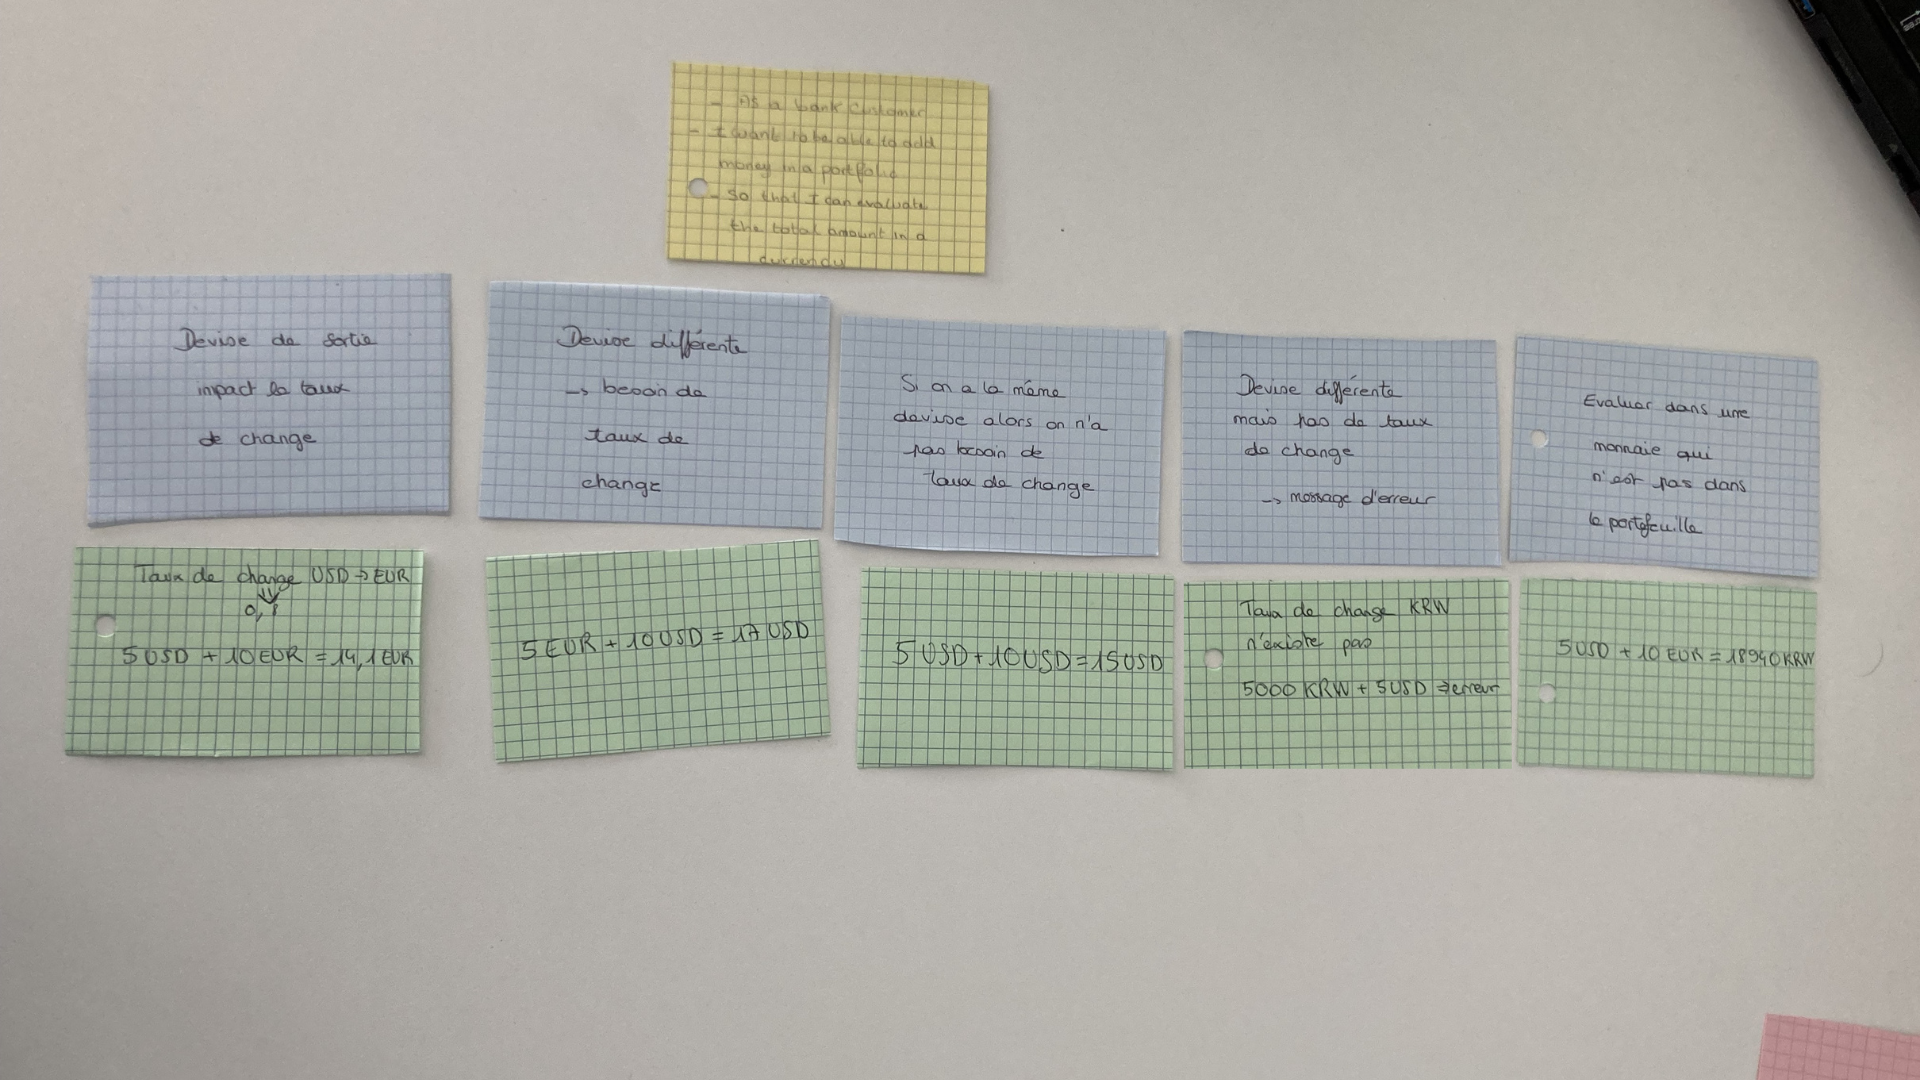 - As a bank customer
- I want to be able to add
money in a portfolio
- So that I can evaluate
the total amount in a
Devise de sortie
impact le taux
de change
Devise différente
→ besoin de
taux de
change
Si on a la même
devise alors on n'a
pas besoin de
taux de change
Devise différente
mais pas de taux
de change
→ message d'erreur
Evaluer dans une
monnaie qui
n'est pas dans
le portefeuille
Taux de change USD → EUR
5 USD + 10 EUR = 14,1 EUR
5 EUR + 10 USD = 17 USD
5 USD + 10 USD = 15 USD
Taux de change KRW
n'existe pas
5000 KRW + 5 USD ⇒ erreur
5 USD + 10 EUR = 18940 KRW